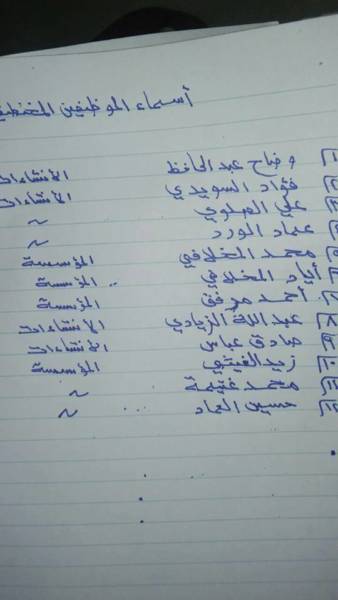 أسماء الموظفين
١ وضاح عبدالحافظ الانشاءات
٢ فؤاد السويدي الانشاءات
٣ علي الصلوي ~
٤ عماد الورد ~
٥ محمد المخلافي المؤسسة
٦ أياد المخلافي .. المؤسسة
٧ أحمد مرفق المؤسسة
٨ عبدالله الزيادي الانشاءات
٩ صادق عباس الانشاءات
١٠ زيد الفيتي المؤسسة
١١ محمد غنيمة ~
١٢ حسين العماد ... ~